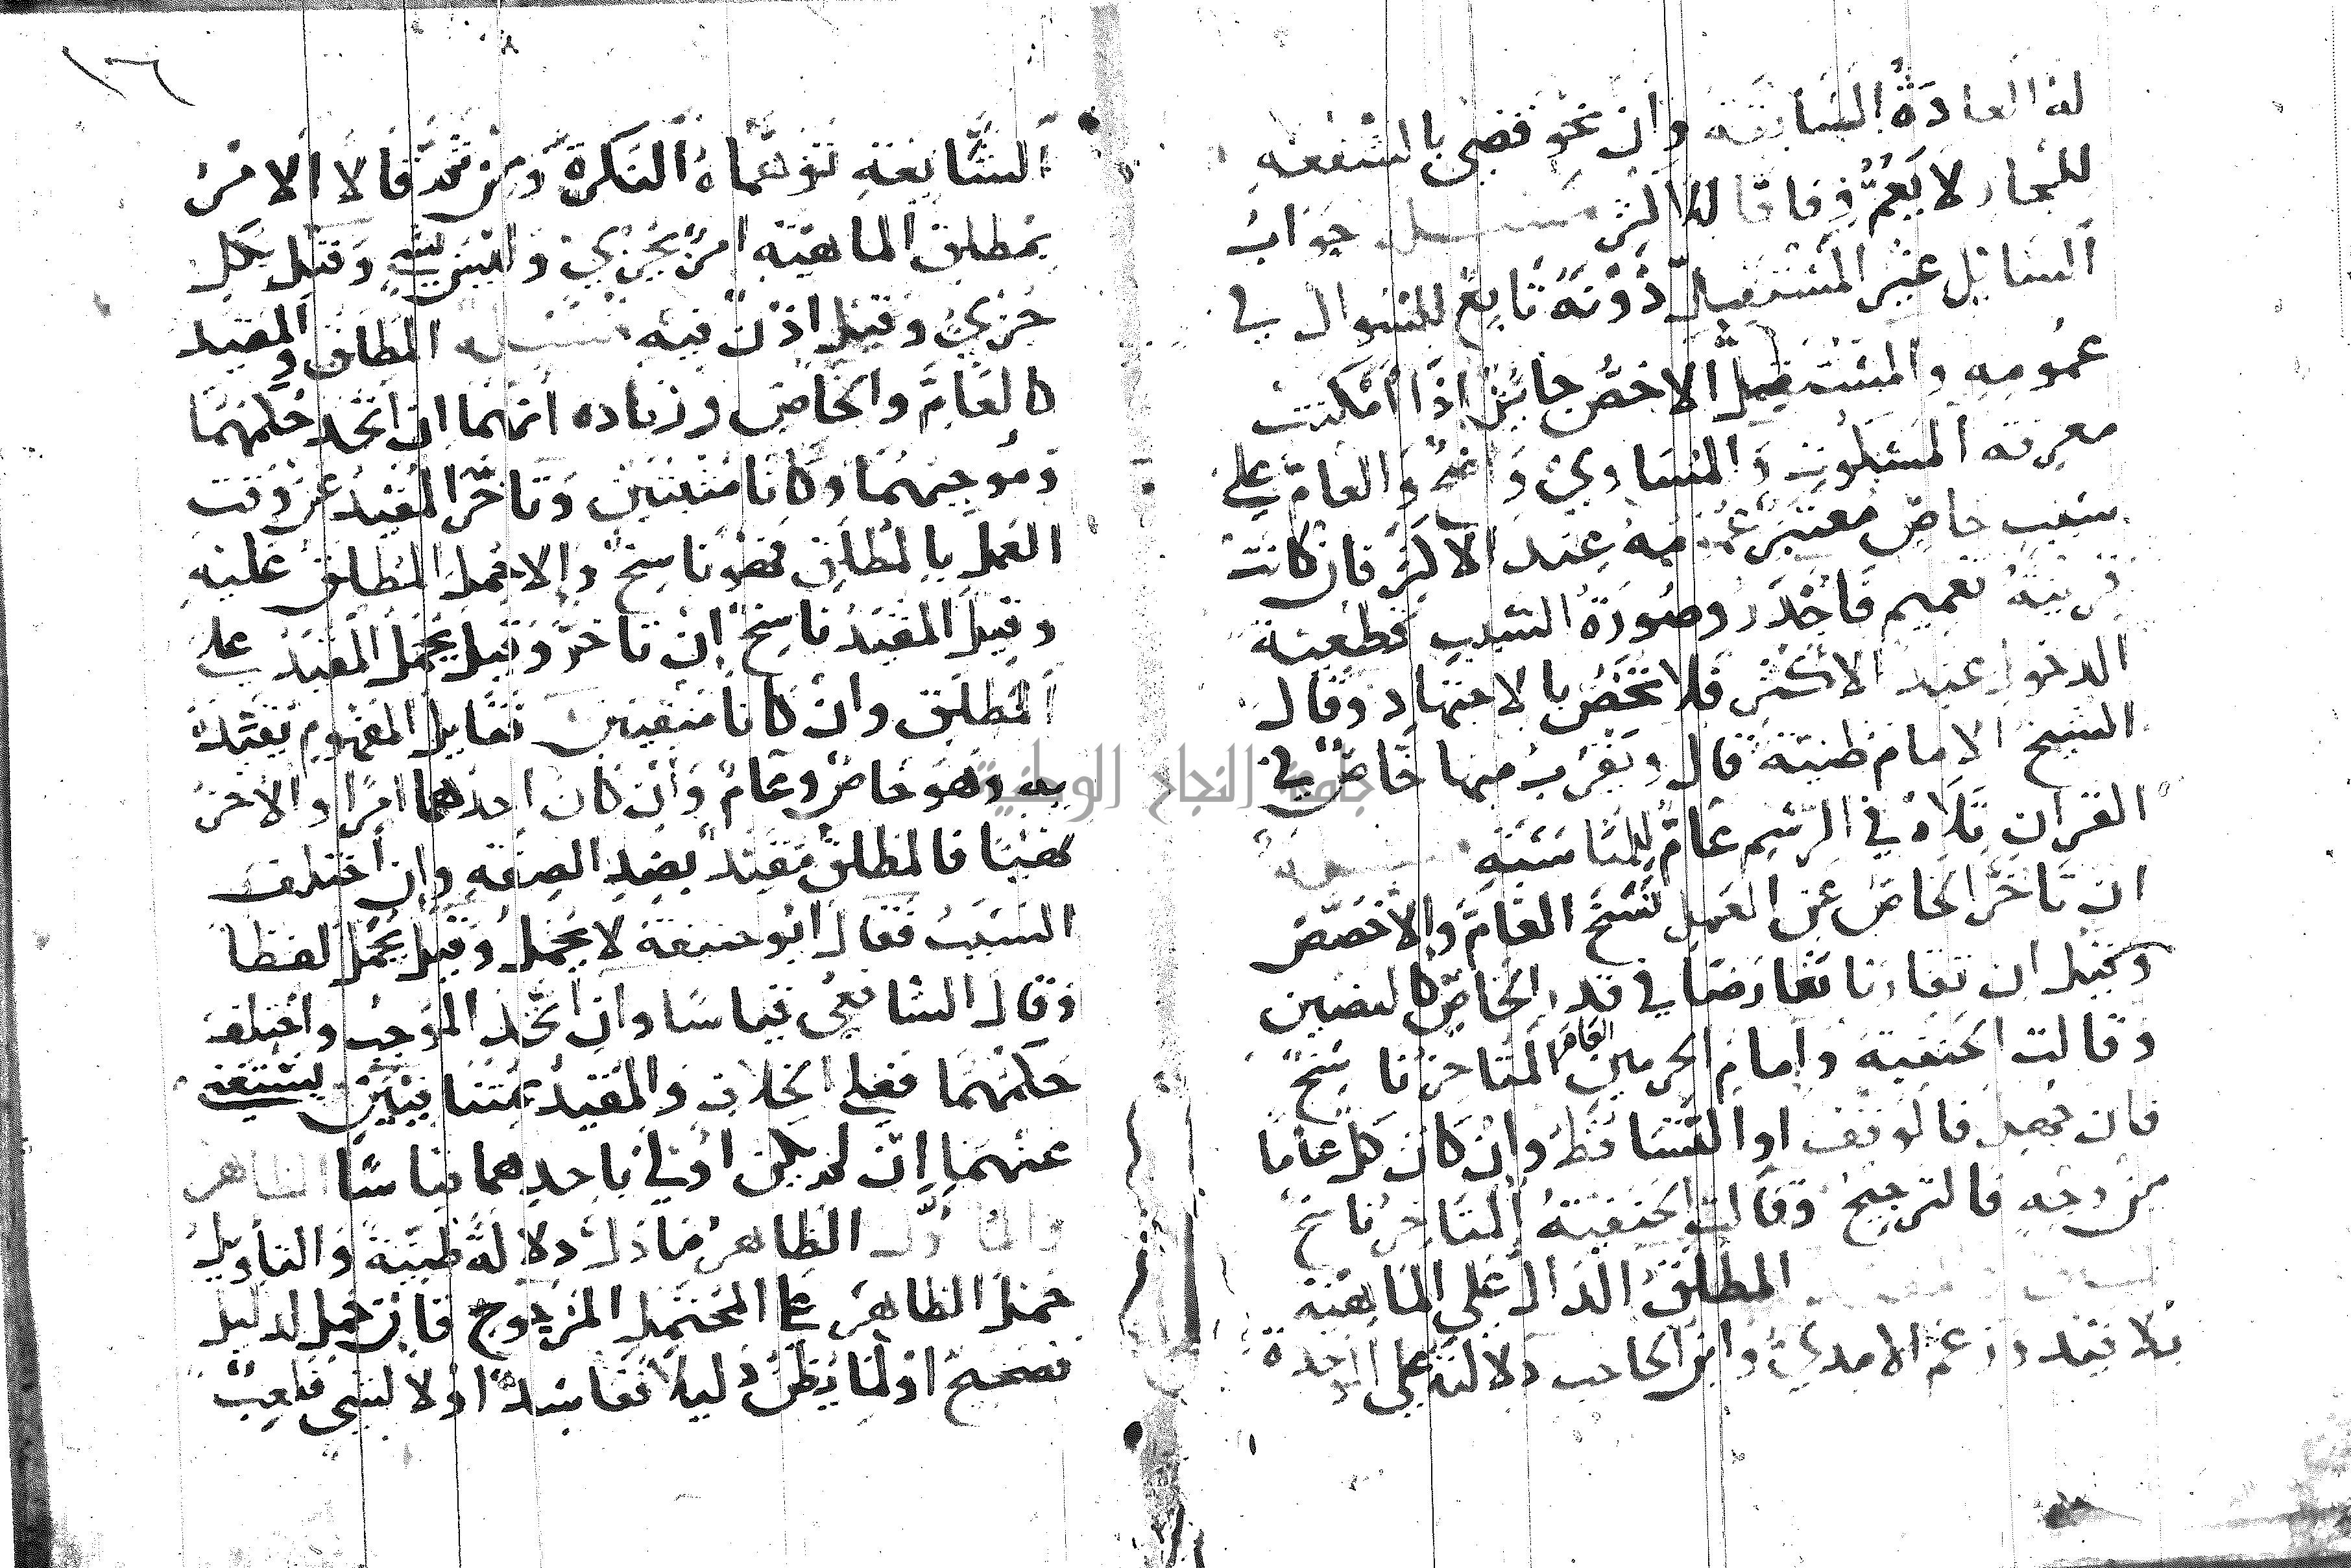 له العادة السابقة وان نحو قضى بالشفعة
للجار لا يعم وفاقا للاكثر مسئلة جواب
السايل غير المستقل دونه تابع للسوال في
عمومه والمستقل الاخص جايز اذا امكنت
معرفة المسكوت والمساوي واضح والعام على
سبب خاص معتبر عمومه عند الاكثر فان كانت
قرينة تعميم فاجدر وصورة السبب قطعية
الدخول عند الاكثر فلا تخص بالاجتهاد وقال
الشيخ الامام ظنية قال ويقرب منها خاص في
القران تلاه في الرسم عام للمناسبة مسئلة
ان تاخر الخاص عن العمل نسخ العام والا خصص
وقيل ان تقارنا تعارضا في قدر الخاص كالنصين
وقالت الحنفية وامام الحرمين العام المتاخر ناسخ
فان جهل فالوقف او التساقط وان كان كل عاما
من وجه فالترجيح وقالت الحنفية المتاخر ناسخ
المطلق الدال على الماهية
بلا قيد وزعم الامدي وابن الحاجب دلالته على الوحدة
١٦
الشايعة توهماه النكرة ومن ثم قالا الامر
بمطلق الماهية امر بجزيي وليس بشي وقيل بكل
جزيي وقيل اذن فيه مسئلة المطلق والمقيد
كالعام والخاص وزيادة انهما ان اتحد حكمهما
وموجبهما وكانا مثبتين وتاخر المقيد عن وقت
العمل بالمطلق فهو ناسخ والا حمل المطلق عليه
وقيل المقيد ناسخ ان تاخر وقيل يحمل المقيد على
المطلق وان كانا منفيين فقايل المفهوم يقيده
به وهو خاص وعام وان كان احدهما امرا والاخر
نهيا فالمطلق مقيد بضد الصفة وان اختلف
السبب فقال ابو حنيفة لا يحمل وقيل يحمل لفظا
وقال الشافعي قياسا وان اتحد الموجب واختلف
حكمهما فعلى الخلاف والمقيد بمتنافيين يستغني
عنهما ان لم يكن اولى باحدهما قياسا الظاهر
والماول الظاهر ما دل دلالة ظنية والتاويل
حمل الظاهر على المحتمل المرجوح فان حمل لدليل
فصحيح او لما يظن دليلا ففاسد او لا لشي فلعب
جامعة النجاح الوطنية